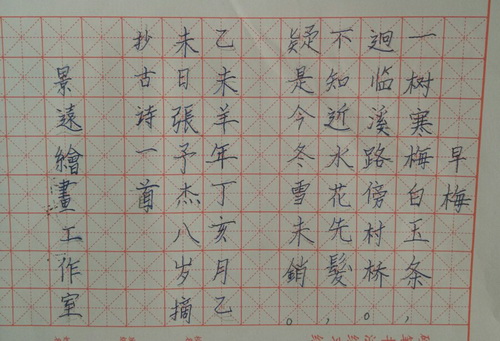 早梅
一树寒梅白玉条，
迥临溪路傍村桥。
不知近水花先髮，
疑是今冬雪未銷。
乙未羊年丁亥月乙
未日張予杰八岁摘
抄古詩一首
景遠繪畫工作室